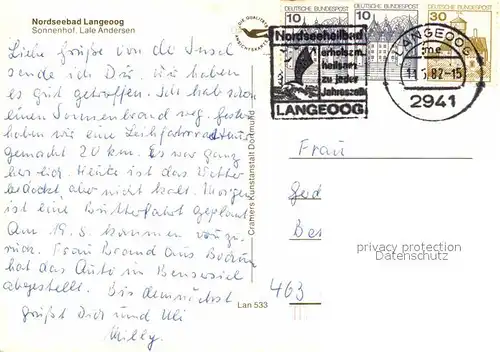 Nordseebad Langeoog
Sonnenhof, Lale Andersen
Liebe Grüße von der Insel
sende ich Dir. Wir haben
es gut getroffen. Ich hab schon
einen Sonnenbrand weg. Gestern
haben wir eine Leihfahrradtour
gemacht 20 km. Es war ganz
herrlich. Heute ist das Wetter
bedeckt aber nicht kalt. Morgen
ist eine Butterfahrt geplant
Am 19.5. kommen wir zu
rück. Frau Brand aus Bochum
hat das Auto in Bensersiel
abgestellt. Bis demnächst
grüßt Dich und Uli
Milly.
Cramers Kunstanstalt Dortmund
Lan 533
DEUTSCHE BUNDESPOST
10
DEUTSCHE BUNDESPOST
10
DEUTSCHE BUNDESPOST
30
Nordseeheilbad
erholsam
heilsam
zu jeder
Jahreszeit
LANGEOOG
LANGEOOG
me
82-15
2941
Frau
463
privacy protection
Datenschutz